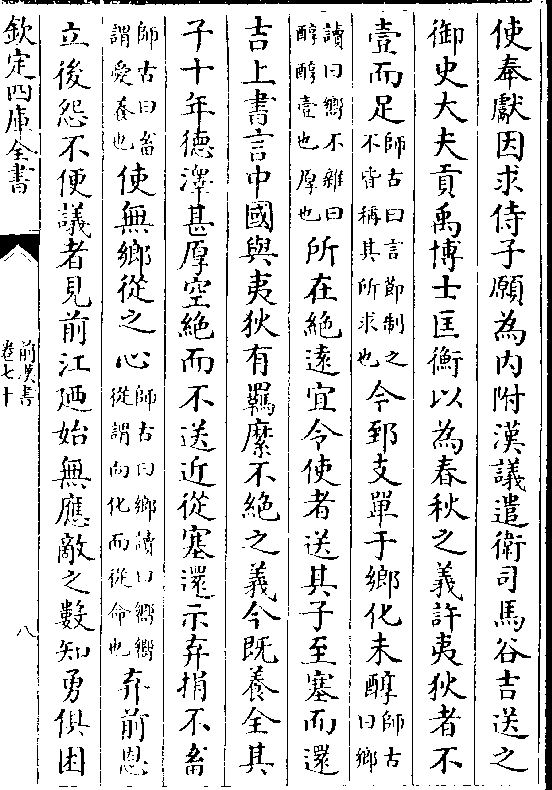 使奉獻因求侍子願為内附漢議遣衛司馬谷吉送之
御史大夫貢禹博士匡衡以為春秋之義許夷狄者不
壹而足師古曰言節制之不皆稱其所求也今郅支單于鄉化未醇師古曰鄉
讀曰嚮不雜曰醇醇壹也厚也所在絶遠宜令使者送其子至塞而還
吉上書言中國與夷狄有羈縻不絶之義今既養全其
子十年德澤甚厚空絶而不送近從塞還示弃捐不畜
師古曰畜謂愛養也使無鄉從之心師古曰鄉讀曰嚮嚮從謂向化而從命也弃前恩
立後怨不便議者見前江廼始無應敵之數知勇俱困
欽定四庫全書
前漢書
卷七十
八